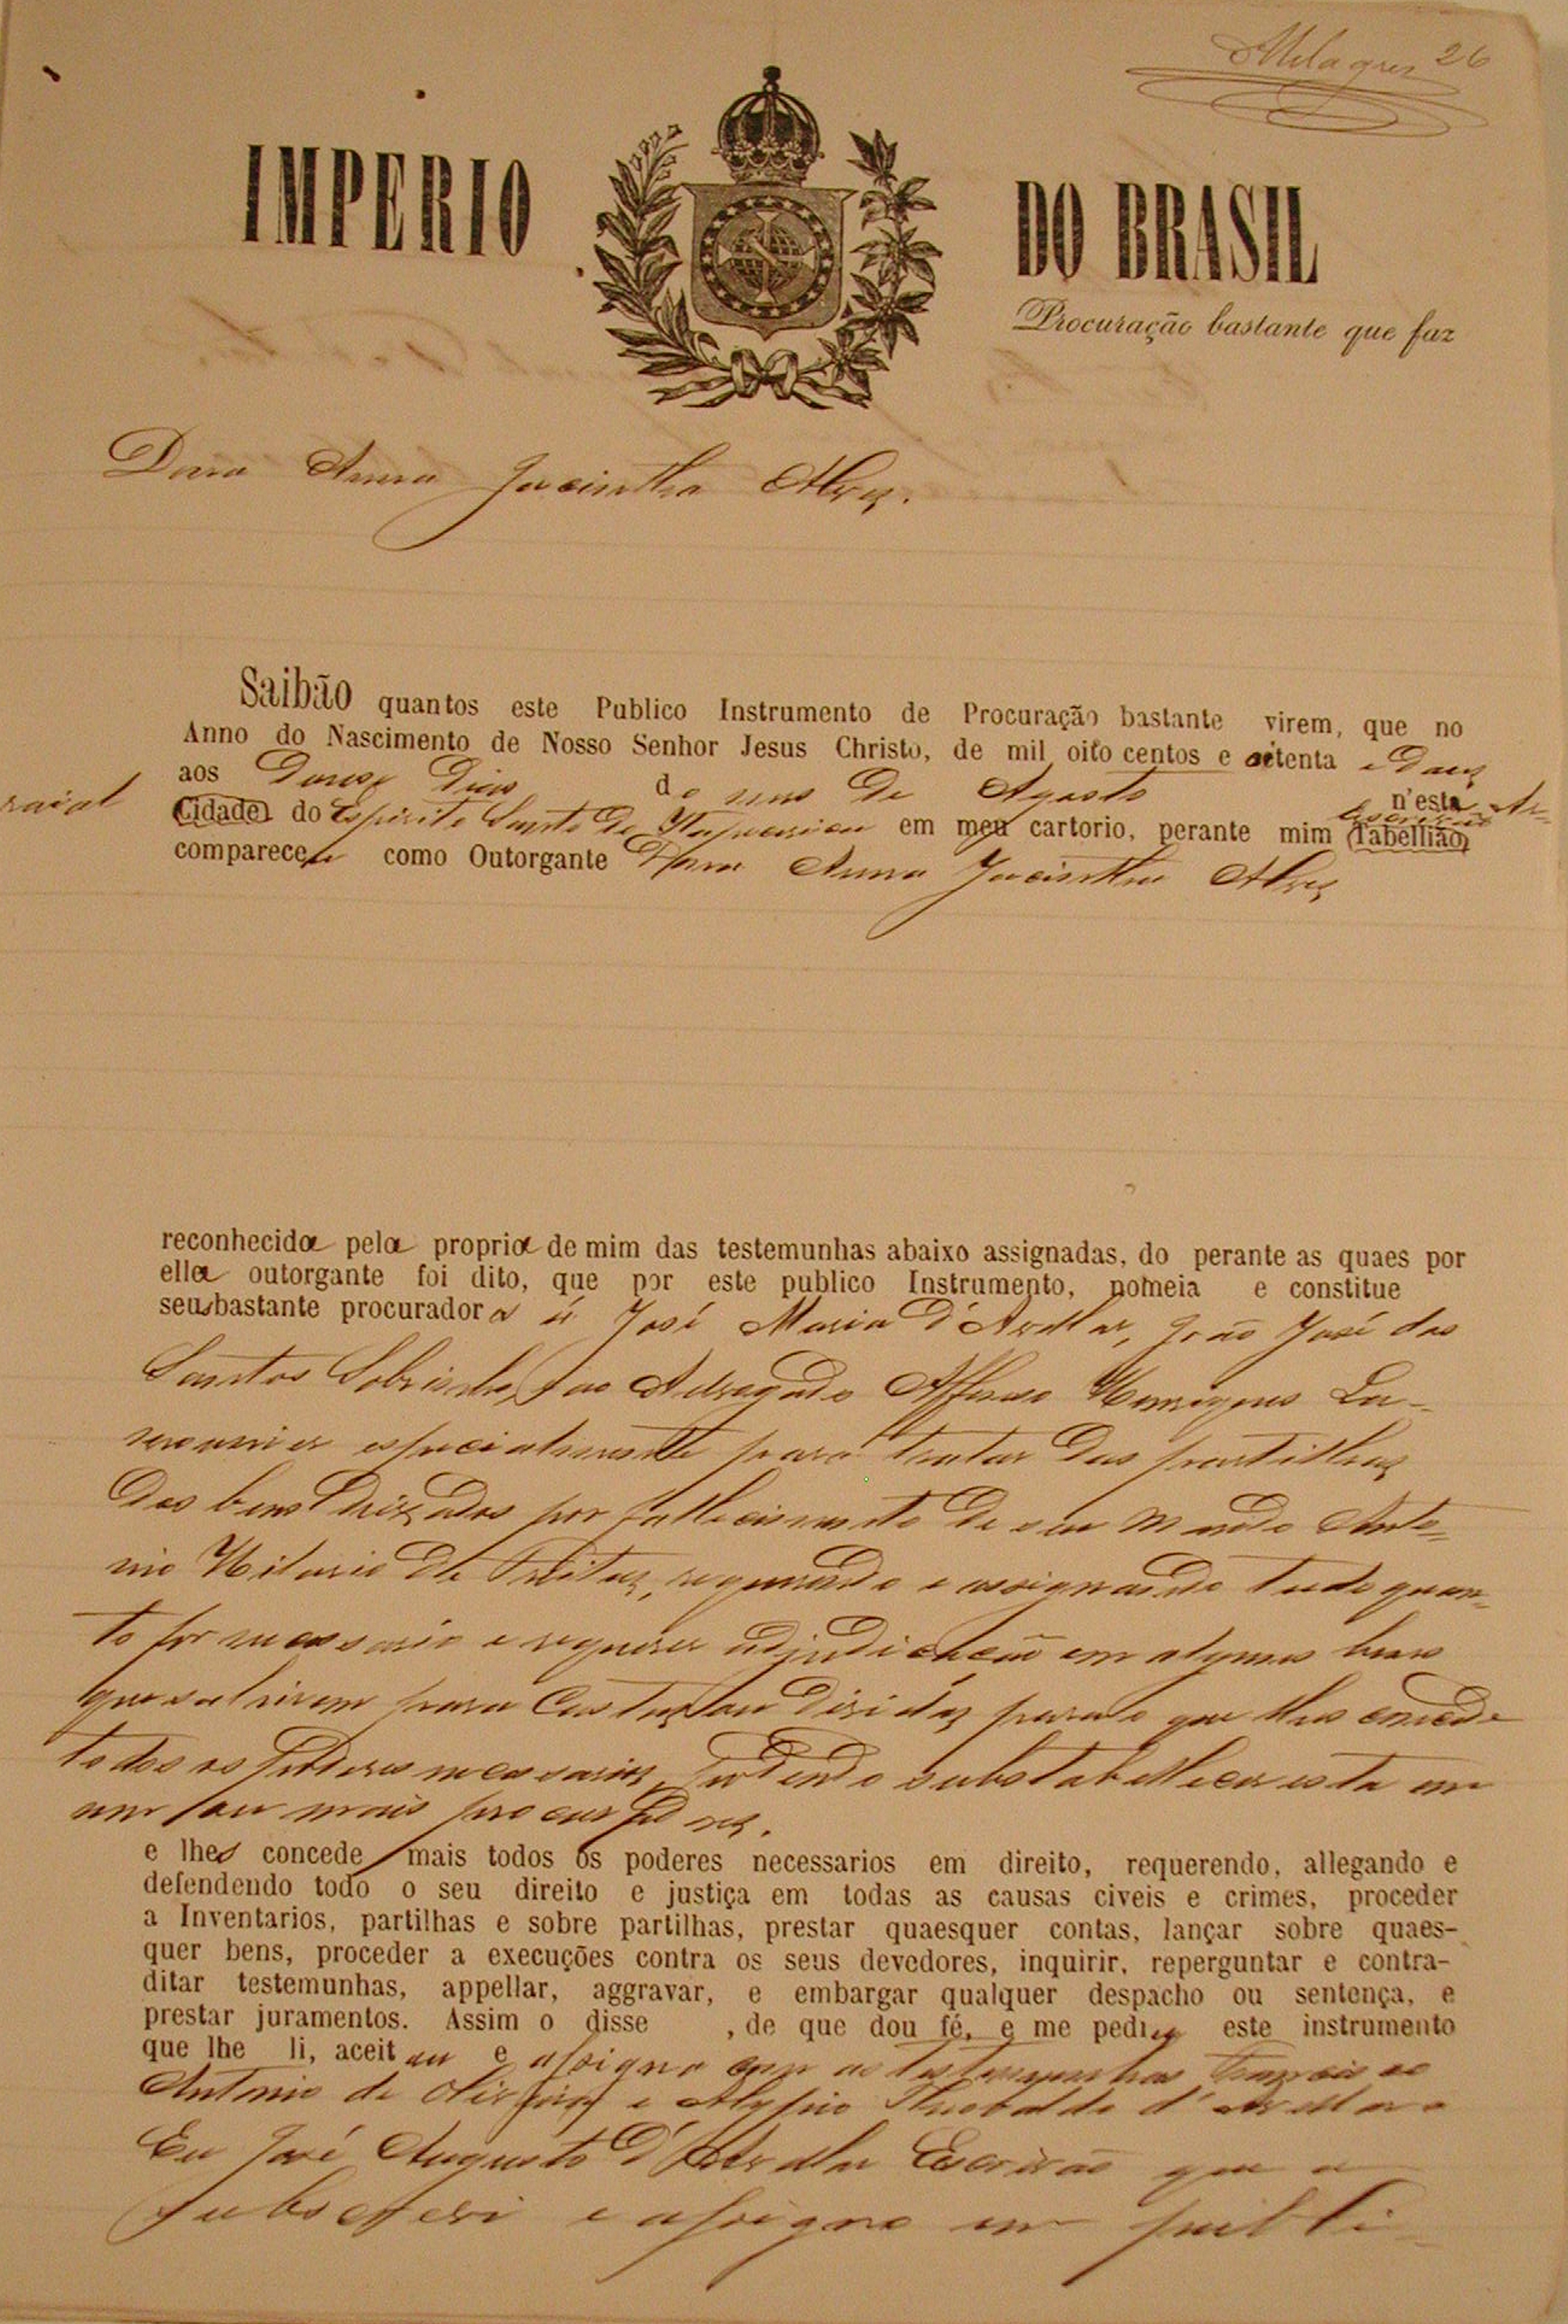 Milagres 26
IMPERIO DO BRASIL
Procuração bastante que faz
Dona Anna Jacintha Alves.
Saibão quantos este Publico Instrumento de Procuração bastante virem, que no
Anno do Nascimento de Nosso Senhor Jesus Christo, de mil oito centos e oitenta e dous
aos Dous Dias do mes de Agosto n'esta Ar-
raial Cidade do Espirito Santo de Itapecerica em meu cartorio, perante mim Escrivão Tabellião
compareceu como Outorgante Dona Anna Jacintha Alves
reconhecida pela propria de mim das testemunhas abaixo assignadas, do perante as quaes por
ella outorgante foi dito, que por este publico Instrumento, nomeia e constitue
seus bastante procuradora á José Maria d'Avellar, João José dos
Santos Sobrinho, ao Advogado Affonso Henriques
especialmente para tratar das partilhas
dos bens deixados por fallecimento de seu marido Anto-
nio Hilario de Freitas, requerendo e assignando tudo quan-
to for necessario e requerer adjudicação em alguns bens
que sahirem para Custas ou dividas para o que lhes concede
todos os poderes necessarios, podendo substabellecer esta em
um ou mais procuradores.
e lhes concede mais todos os poderes necessarios em direito, requerendo, allegando e
defendendo todo o seu direito e justiça em todas as causas civeis e crimes, proceder
a Inventarios, partilhas e sobre partilhas, prestar quaesquer contas, lançar sobre quaes-
quer bens, proceder a execuções contra os seus devedores, inquirir, reperguntar e contra-
ditar testemunhas, appellar, aggravar, e embargar qualquer despacho ou sentença, e
prestar juramentos. Assim o disse , de que dou fé, e me pediu este instrumento
que lhe li, aceitou e assigna com as testemunhas
Antonio de Oliveira e Alypio Theobaldo d'Avellar
Eu José Augusto d'Avellar Escrivão que o
subscrevi e assigno em publi-